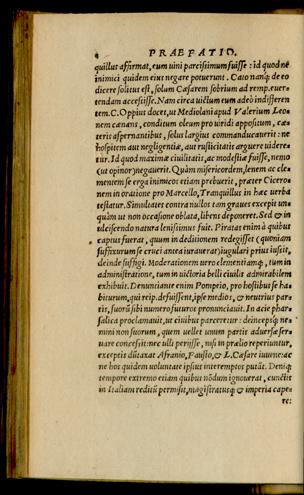 4 PRAEFATIO.
quillus affirmat, eum uini parcissimum fuisse: id quod ne
inimici quidem eius negare potuerunt. Cato namq́; de eo
dicere solitus est, solum Cæsarem sobrium ad remp. euer-
tendam accessisse. Nam circa uictum eum adeò indifferen
tem, C. Oppius docet, ut Mediolani apud Valerium Leo=
nem cænans, conditum oleum pro uiridi appositum, cæ=
teris aspernantibus, solus largius comanducauerit: ne
hospitem aut negligentiæ, aut rusticitatis arguere uidere=
tur. Id quod maximæ ciuilitatis, ac modestiæ fuisse, nemo
(ut opinor) negauerit. Quàm misericordem, lenem ac cle=
mentem se erga inimicos etiam præbuerit, præter Cicero=
nem in oratione pro Marcello, Tranquillus in hæc uerba
testatur. Simultates contra nullos tam graues excepit un=
quàm ut non occasione oblata, libens deponeret. Sed & in
ulciscendo natura lenissimus fuit. Piratas enim à quibus
captus fuerat, quum in deditionem redegisset (quoniam
suffixurum se cruci antea iurauerat) iugulari prius iussit,
deinde suffigi. Moderationem uero clementiamq́;, tum in
administratione, tum in uictoria belli ciuilis admirabilem
exhibuit. Denunciante enim Pompeio, pro hostibus se ha
biturum, qui reip. defuissent, ipse medios, & neutrius par=
tis, suorũ sibi numero futuros pronunciauit. In acie phar=
salica proclamauit, ut ciuibus parceretur: deincepsq́; ne=
mini non suorum, quem uellet unum partis aduersæ ser=
uare concessit: nec ulli perijsse, nisi in prælio reperiuntur,
exceptis dũtaxat Afranio, Fausto, & L. Cæsare iuuene: ac
ne hos quidem uoluntate ipsius interemptos putãt. Deniq́;
tempore extremo etiam quibus nõdum ignouerat, cunctis
in Italiam reditũ permisit, magistratusq́; & imperia cape
re: